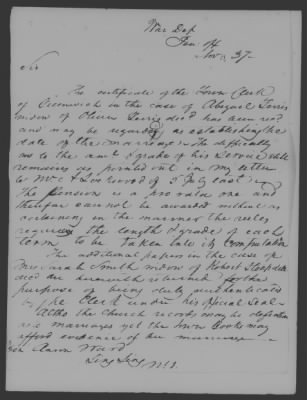 War Dep
Pen Of
Nov 37
Sir
The certificate of the Town Clerk
of Greenwich in the case of Abigail Ferris
widow of Oliver Ferris decd has been recd
and may be regarded as establishing the
date of the marriage The difficulty
as to the amt & grade of his service still
remains as pointed out in my letter
to of 3 July last
The pension is a pro rata one and
therefore cannot be awarded without
ascertaining in the manner the rules
require the length & grade of each
term to be taken into the computation
The additional papers in the case of
Mrs Sarah Smith widow of Robert
decd are herewith returned for the
purpose of being duly authenticated
by the Clerk under his official Seal
Altho the Church records may be defective
as marriages yet the Town books may
afford evidence of the marriage
Hon Aaron Ward
Sing Sing
N.Y.